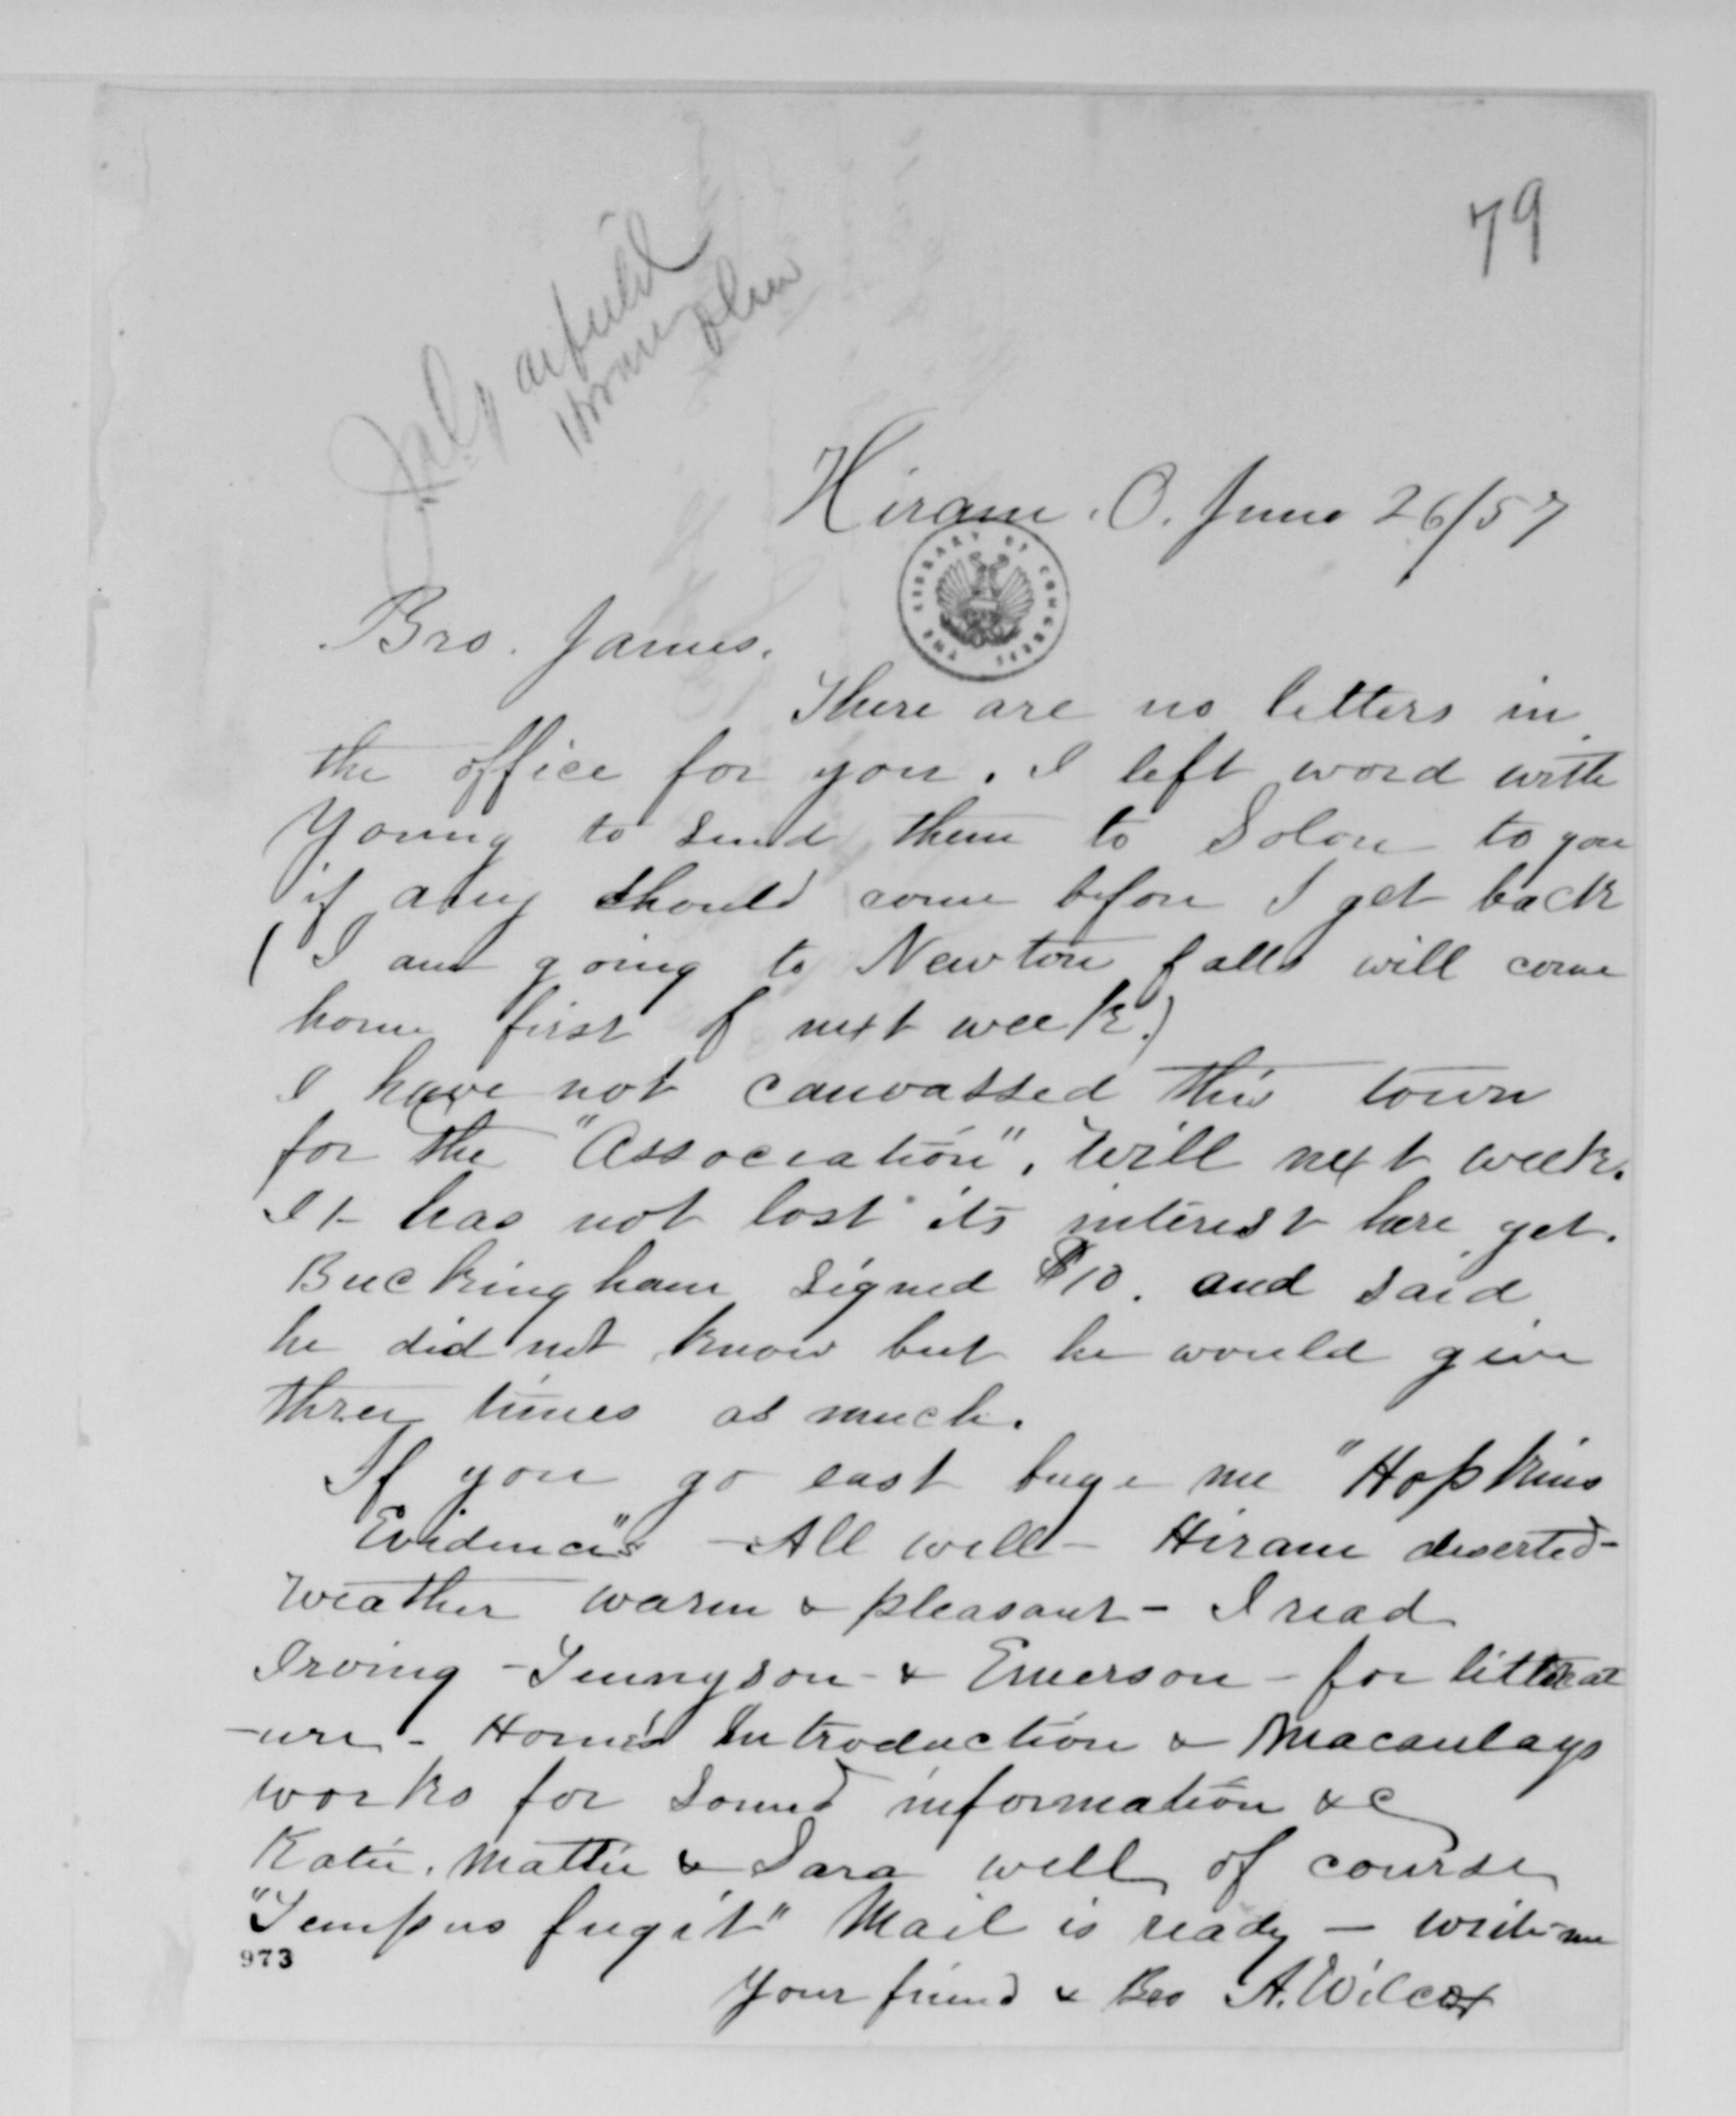 79
Hiram. O. June 26/57
THE LIBRARY OF CONGRESS
Bro. James.
There are no letters in
the office for you. I left word with
Young to send them to Solon to you
if any should come before I get back
(I am going to Newton falls will come
home first of next week.)
I have not canvassed this town
for the "Association". Will next week.
It has not lost its interest here yet.
Buckingham signed $10. and said
he did not know but he would give
three times as much.
If you go east buy me "Hopkins
Evidences" - All well - Hiram deserted -
Weather warm & pleasant - I read
Irving - Tennyson - & Emerson - for litterat
-ure - Horne's Introduction & Macaulays
works for sound information &c
Katie, Mattie & Sara well of course
"Tempus fugit" Mail is ready - write me
973
Your friend & Bro A. Wilcox